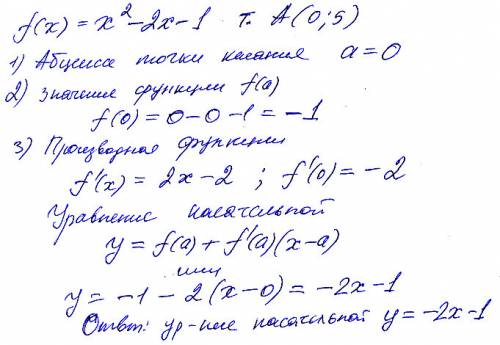 f(x) = x² - 2x - 1 т. A(0; 5)
1) Абцисса точки касания a = 0
2) Значение функции f(a)
f(0) = 0 - 0 - 1 = -1
3) Производная функции
f'(x) = 2x - 2 ; f'(0) = -2
Уравнение касательной
y = f(a) + f'(a)(x-a)
или
y = -1 - 2(x-0) = -2x - 1
Ответ: ур-ние касательной y = -2x-1